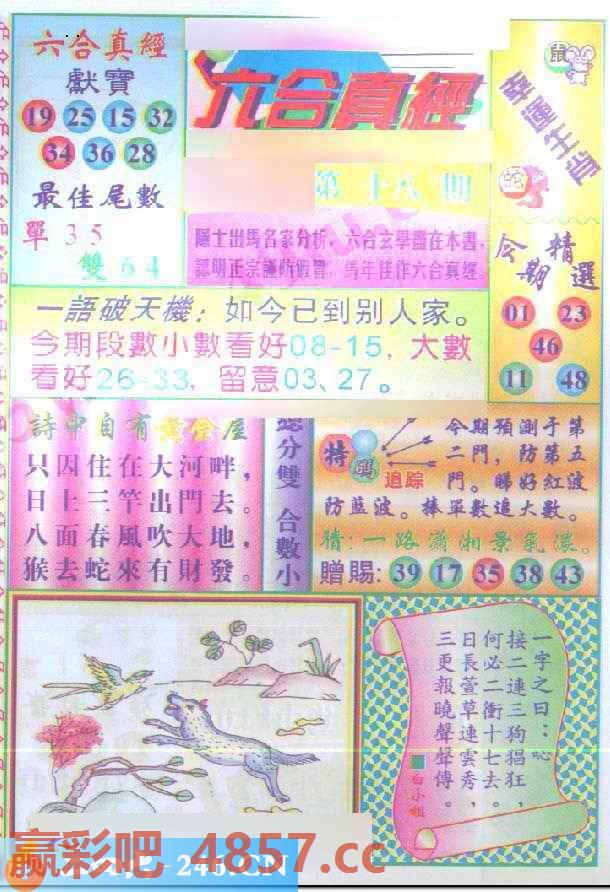 六合真經
獻寶
19 25 15 32
34 36 28
最佳尾數
單 35
雙 64
六合真經
第十八期
隱士出馬名家分析，六合玄學盡在本書。
認明正宗謹防假冒，馬年佳作六合真經。
鼠
幸運生肖
蛇
今期精選
01 23
46
11 48
一語破天機：如今已到别人家。
今期段數小數看好08-15，大數
看好26-33，留意03、27。
詩中自有黃金屋
只因住在大河畔，
日上三竿出門去。
八面春風吹大地，
猴去蛇來有財發。
總分雙 合數小
特碼
追踪
今期預測于第
二門，防第五
門。睇好紅波
防藍波。捧單數追大數。
猜：一路瀟湘景氣濃。
贈賜：39 17 35 38 43
一字之曰：吣
接二連三狗猖狂，
何必二衝十七去。
日長萱草連雲秀，
三更報曉聲聲傳。
白小姐
赢彩吧 4857.cc
246.CN